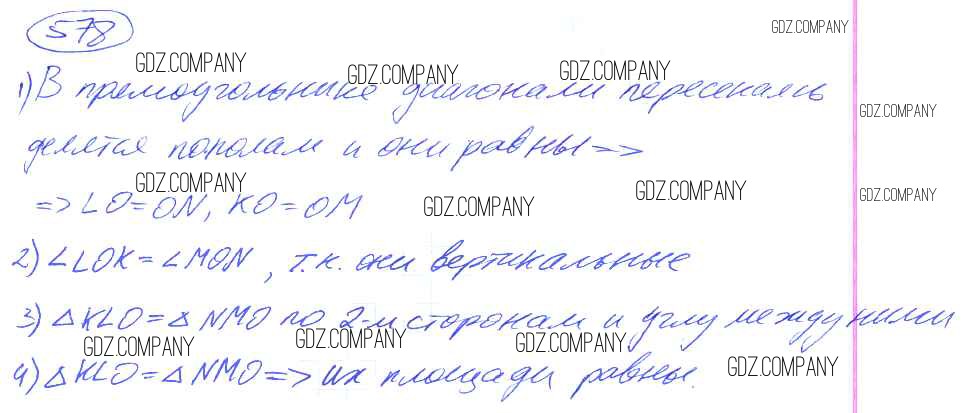 578
GDZ.COMPANY
GDZ.COMPANY GDZ.COMPANY GDZ.COMPANY
1) В прямоугольнике диагонали пересекаясь
GDZ.COMPANY
делятся пополам и они равны =>
GDZ.COMPANY GDZ.COMPANY GDZ.COMPANY GDZ.COMPANY
=> LO=ON, KO=OM
2) ∠LOK=∠MON, т.к. они вертикальные
3) △KLO=△NMO по 2-м сторонам и углу между ними
GDZ.COMPANY GDZ.COMPANY GDZ.COMPANY GDZ.COMPANY
4) △KLO=△NMO=> их площади равны.